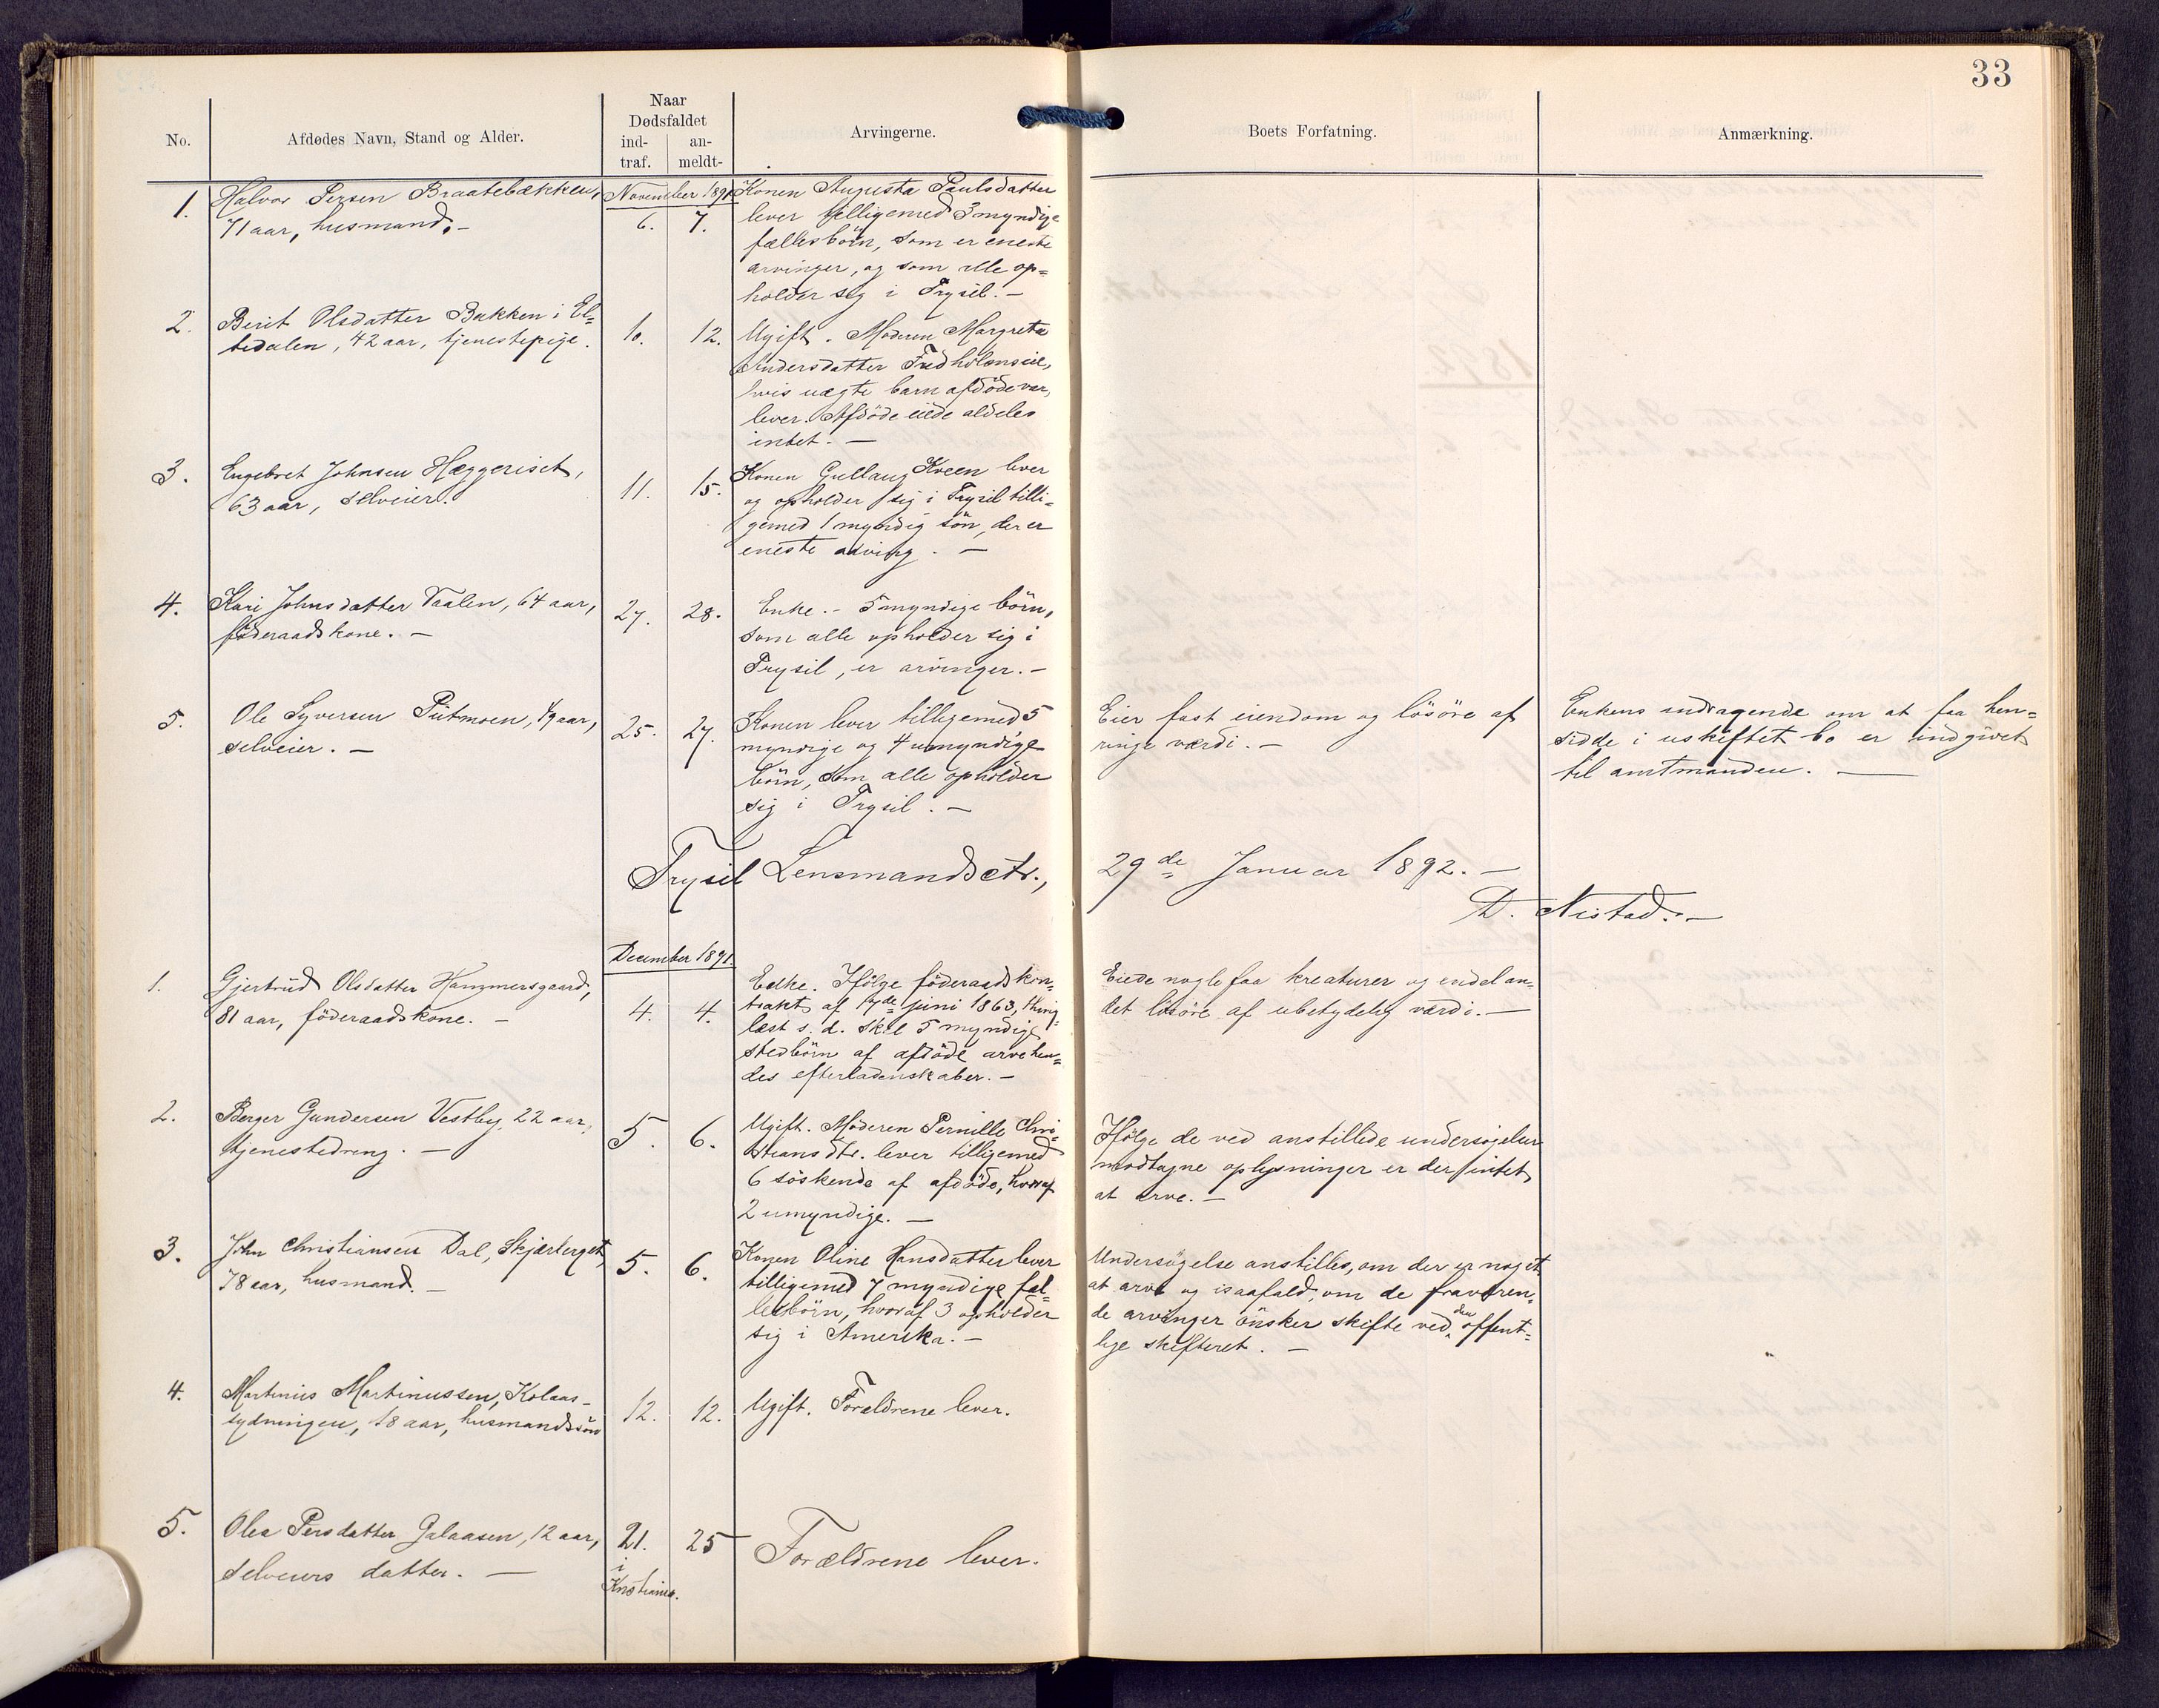 33
No.
Afdødes Navn, Stand og Alder.
Naar
Dødsfaldet
ind-
traf.
an-
meldt-
Arvingerne.
Boets Forfatning.
Anmærkning.
November 1891
1.
Halvor Persen Braatebækken,
71 aar, husmand. –
6.
7.
Konen Augusta Paulsdatter
lever tilligemed 3 myndige
fællesbörn, som er eneste
arvinger, og som alle op=
holder sig i Trysil. –
2.
Berit Olsdatter Bakken i El=
tedalen, 42 aar, tjenestepige.
10.
12.
Ugift. Moderen Margrete
Andersdatter
hvis uægte barn afdöde var,
lever. Afdöde eiede aldeles
intet. –
3.
Engebret Johnsen Hæggeriset,
63 aar, selveier.
11.
15.
Konen Gullaug Kveen lever
og opholder sig i Trysil tilli-
gemed 1 myndig sön, der er
eneste arving. –
4.
Kari Johnsdatter Vaalen, 64 aar,
föderaadskone. –
27.
28.
Enke. – 5 myndige börn,
som alle opholder sig i
Trysil, er arvinger. –
5.
Ole Syversen aar,
selveier. –
25.
27.
Konen lever tilligemed 5
myndige og 4 umyndige
börn, som alle opholder
sig i Trysil. –
Eier fast eiendom og lösöre af
ringe værdi. –
Enkens andragende om at faa hen=
sidde i uskiftet bo er indgivet
til amtmanden. –
Trysil Lensmandsctr., 29de Januar 1892. –
D. Nistad. –
December 1891.
1.
Gjertrud Olsdatter Hammersgaard,
81 aar, föderaadskone. –
4.
4.
Enke. Ifölge föderaadskon-
trakt af 17de juni 1863, thing-
læst s. d. skal 5 myndige
stedbörn af afdöde arve hen=
des efterladenskaber. –
Eiede nogle faa kreaturer og endel an-
det lösöre af ubetydelig værdi. –
2.
Berger Gundersen Vestby, 22 aar,
tjenestedreng. –
5.
6.
Ugift. Moderen Pernille Chri-
stiansdtr. lever tilligemed
6 söskende af afdöde, hvoraf
2 umyndige. –
Ifölge de ved anstillede undersögelser
modtagne oplysninger er der intet
at arve. –
3.
John Christiansen Dal, Skjærberget,
78 aar, husmand. –
5.
6.
Konen Oline Hansdatter lever
tilligemed 7 myndige fæl-
lesbörn, hvoraf 3 opholder
sig i Amerika. –
Undersögelse anstilles, om der er noget
at arve og isaafald, om de fraværen-
de arvinger önsker skifte ved den offent=
lige skifteret. –
4.
Martinus Martinussen, Kolaas-
rydningen, 18 aar, husmandssön
12.
12.
Ugift. Forældrene lever.
5.
Olea Persdatter Galaasen, 12 aar,
selveiers datter. –
21.
i
Kristiania.
25
Forældrene lever.